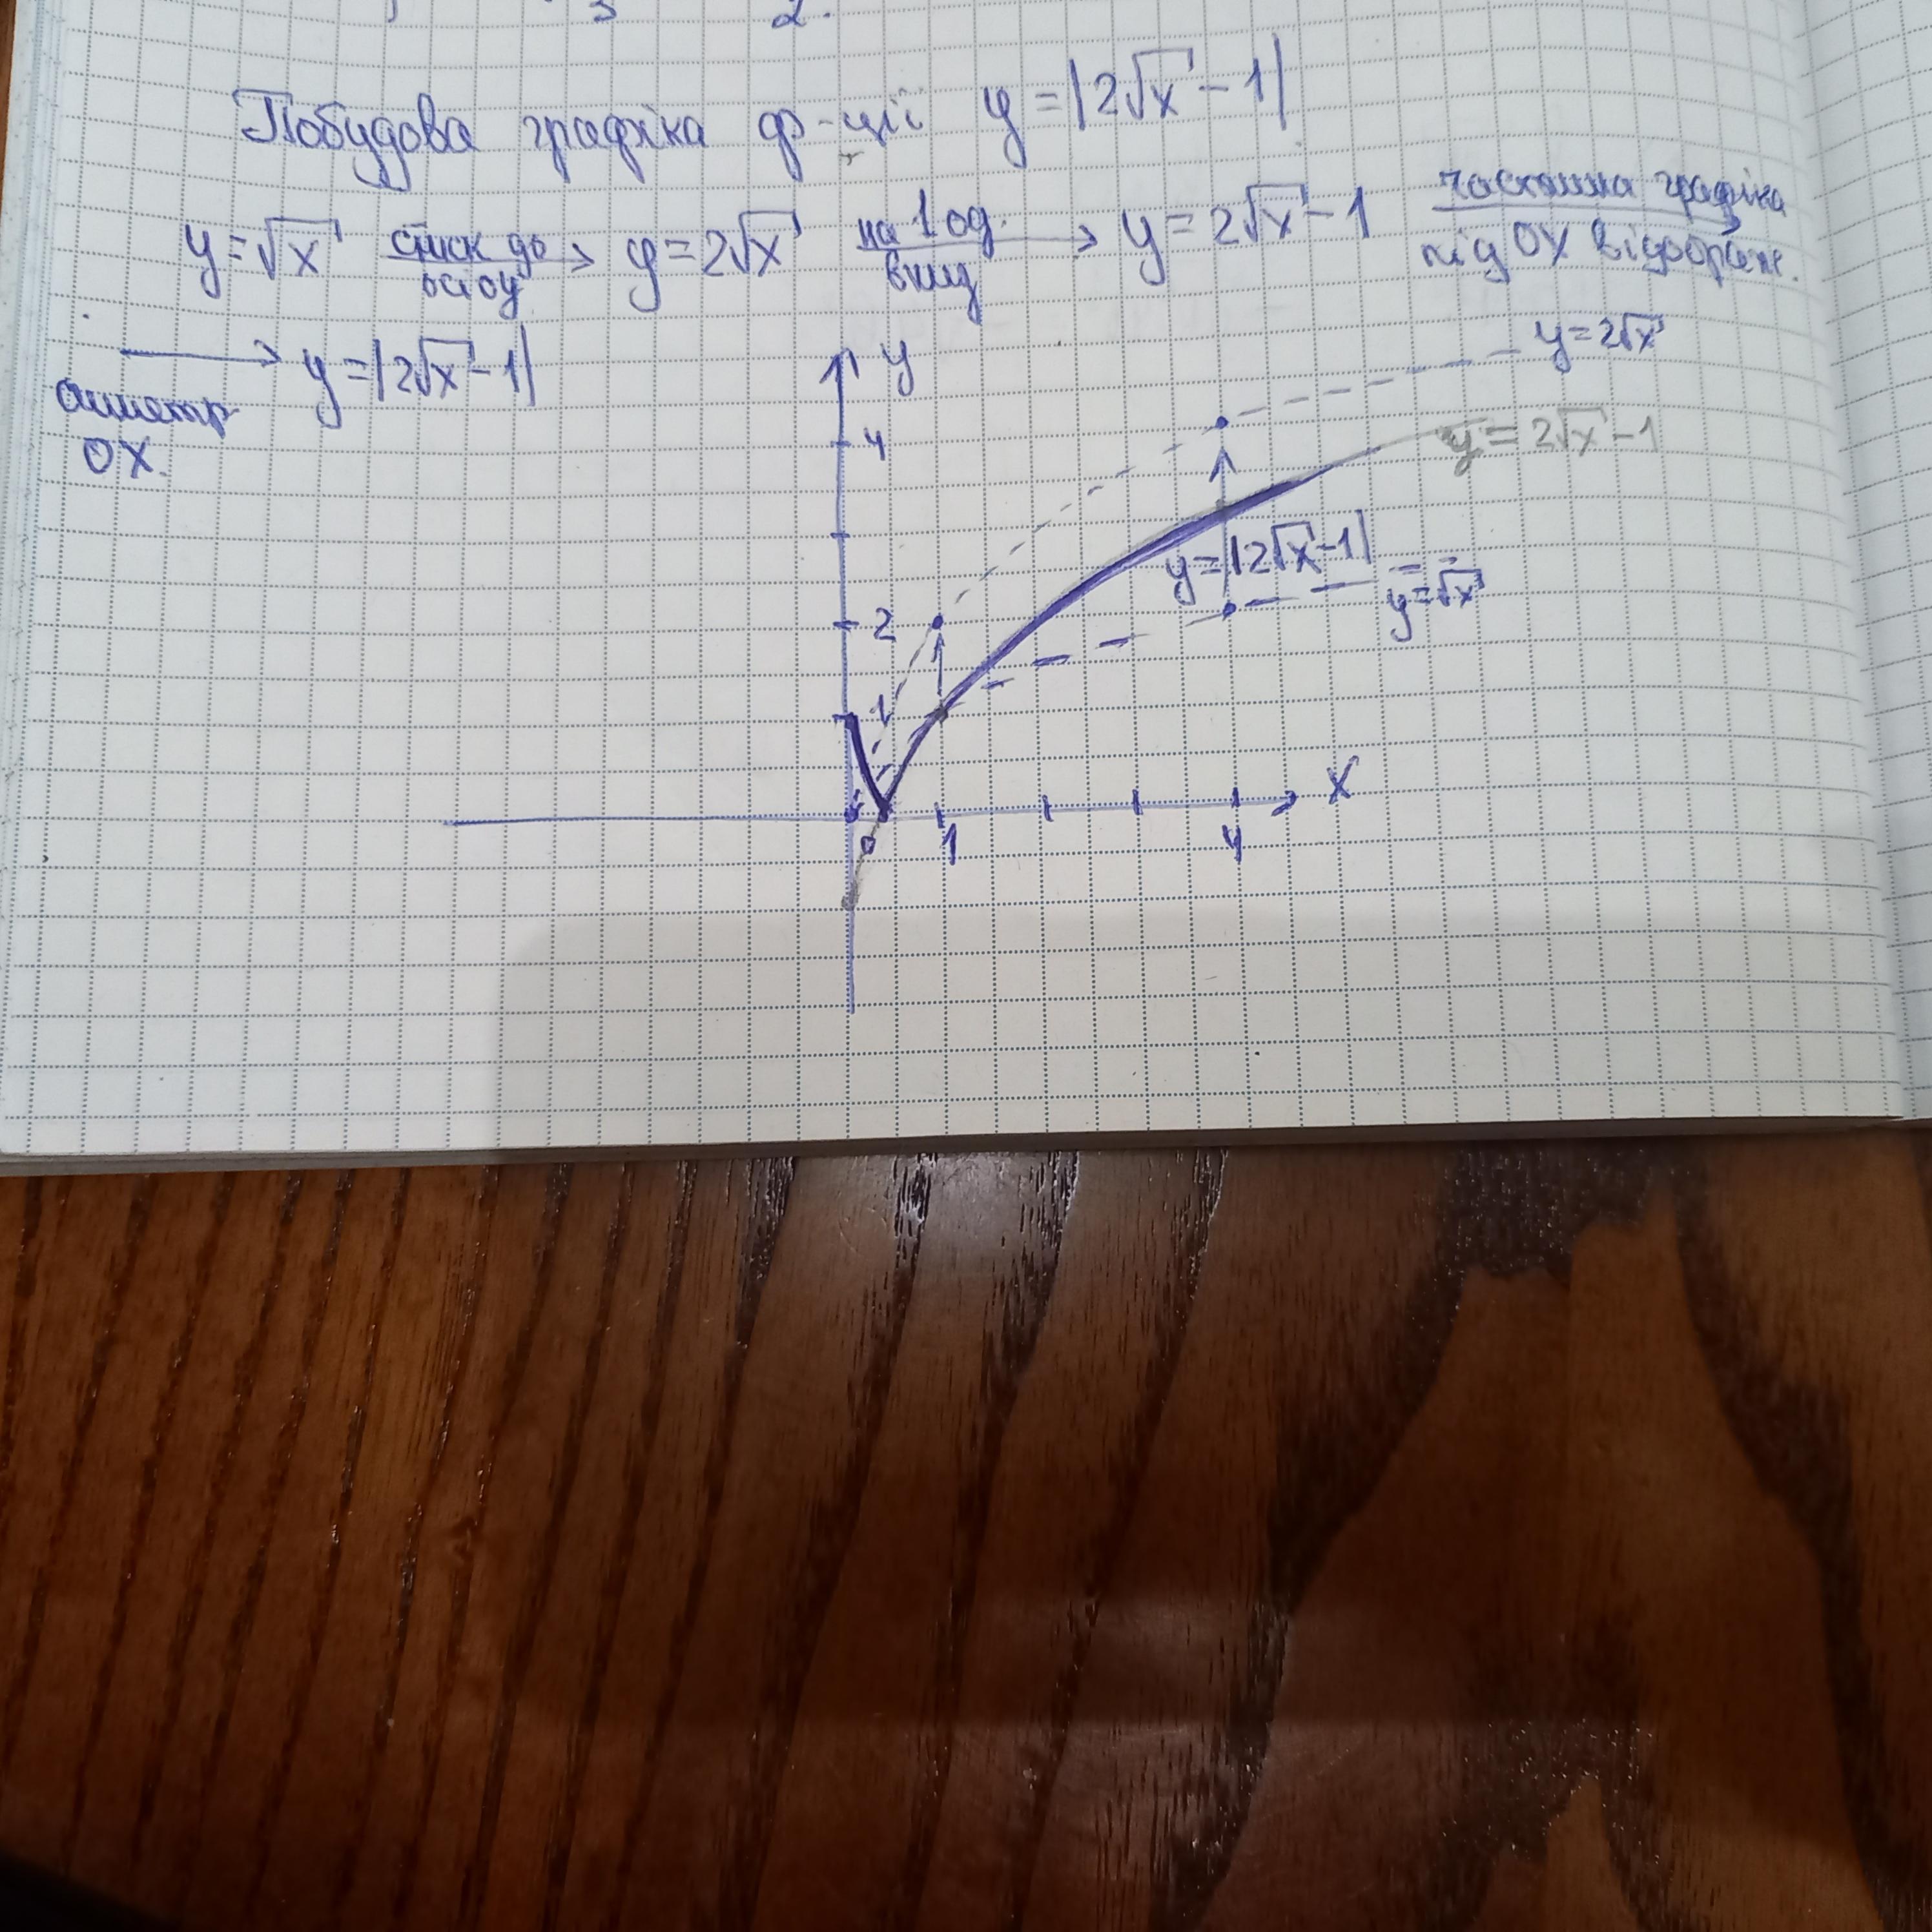 3 2.
Побудова графіка ф-ції y = |2√x - 1|
y = √x стиск до осі OY → y = 2√x на 1 од. вниз → y = 2√x - 1 частина графіка під OX відображ.
→ y = |2√x - 1|
симетр
OX.
y
y = 2√x
4
y = 2√x - 1
y = |2√x - 1|
y = √x
2
1
X
0
1
4